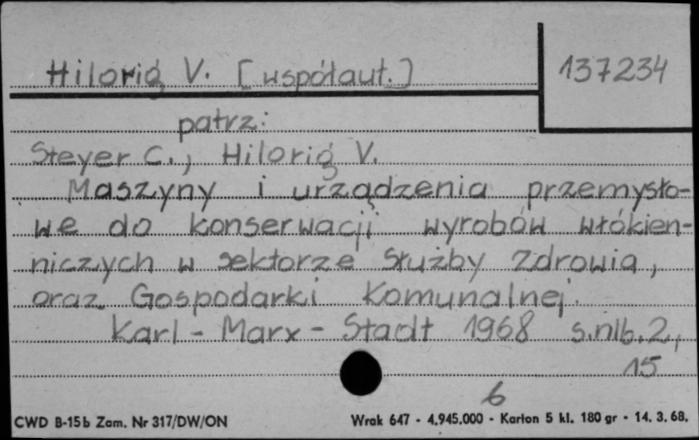 Hilorig V. [współaut.]
137234
patrz:
Steyer C., Hilorig V.
Maszyny i urządzenia przemysło-
we do konserwacji wyrobów włókien-
niczych w sektorze Służby Zdrowia,
oraz Gospodarki Komunalnej.
Karl - Marx - Stadt 1968 s.nlb.2,
15
6
CWD B-15b Zam. Nr 317/DW/ON
Wrak 647 - 4.945.000 - Karton 5 kl. 180 gr - 14. 3. 68.